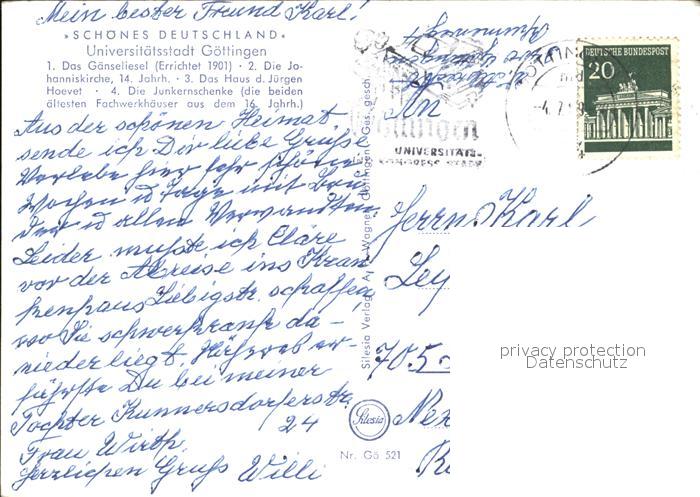 Mein bester Freund Karl!
»SCHÖNES DEUTSCHLAND«
Universitätsstadt Göttingen
1. Das Gänseliesel (Errichtet 1901) · 2. Die Jo-
hanniskirche, 14. Jahrh. · 3. Das Haus d. Jürgen
Hoevet · 4. Die Junkernschenke (die beiden
ältesten Fachwerkhäuser aus dem 16. Jahrh.)
Aus der schönen Heimat
sende ich Dir liebe Grüße
Verlebe hier sehr schöne
Wochen u Tage mit
der u allen Verwandten
Leider mußte ich Cläre
vor der Abreise ins Kran
kenhaus Liebigstr. schaffen
wo Sie schwerkrank da-
niederliegt. Näheres er-
fährst Du bei meiner
Tochter Kunnersdorferstr.
24
Frau Wirth
Herzlichen Gruß Willi
Silesia Verlag
Göttingen Ges. gesch.
Silesia
Nr. Gö 521
An
UNIVERSITÄTS-
DEUTSCHE BUNDESPOST
20
Herrn Karl
Ley
705
privacy protection
Datenschutz